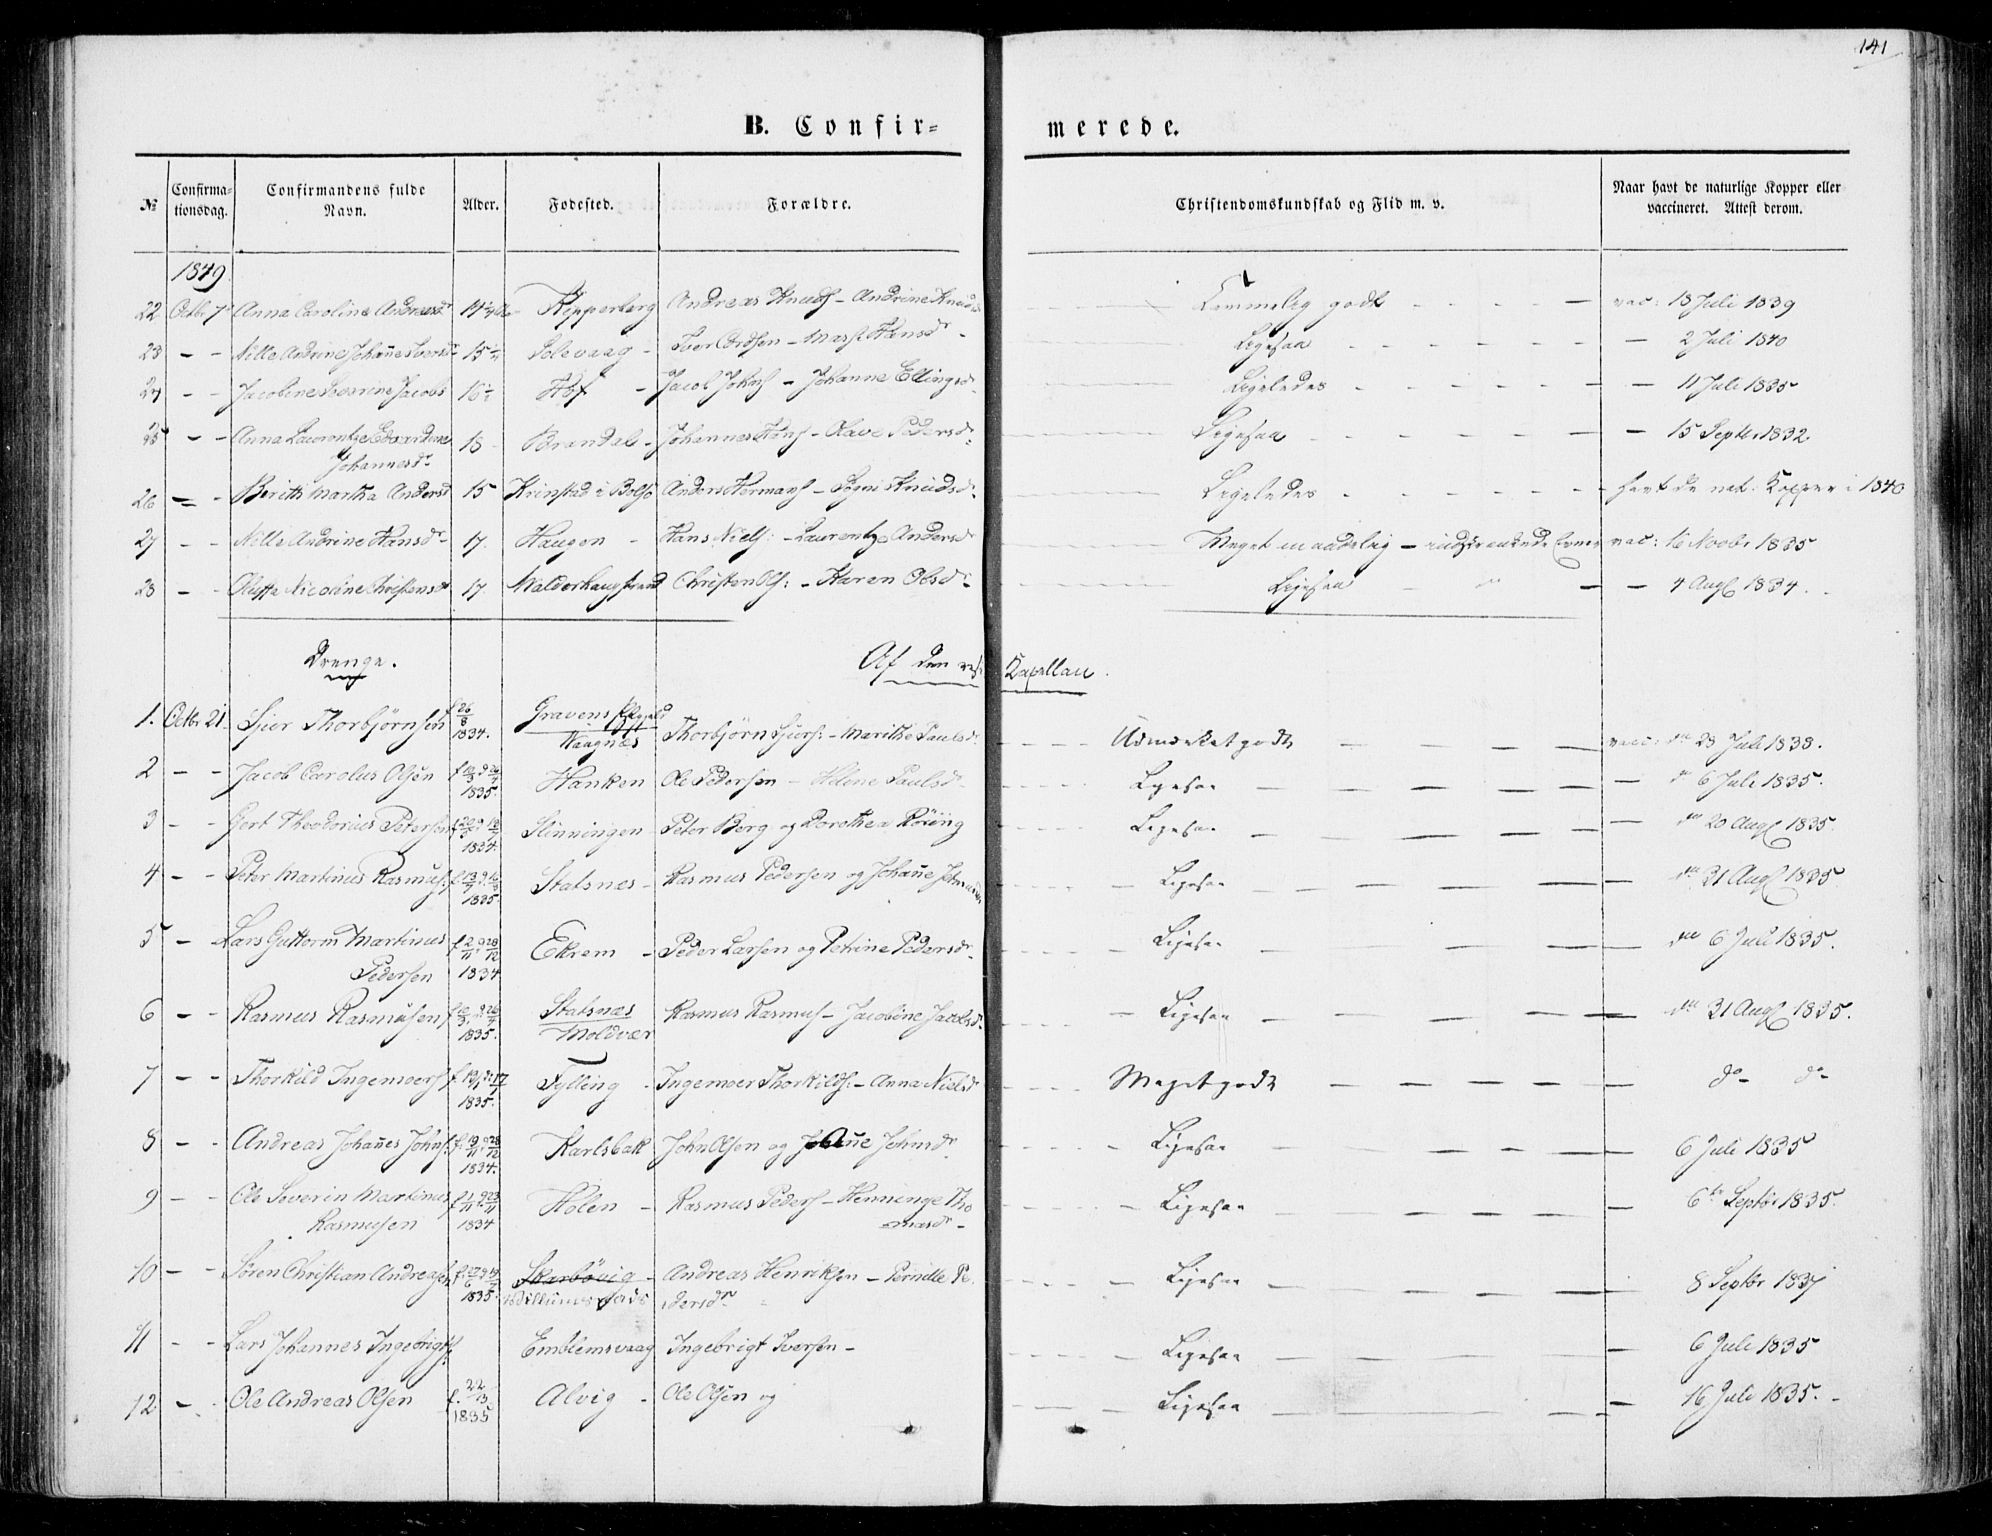 141
B. Confir=
merede.
№
Confirma-
tionsdag.
Confirmandens fulde
Navn.
Alder.
Fødested.
Forældre.
Christendomskundskab og Flid m. v.
Naar havt de naturlige Kopper eller
vaccineret. Attest derom.
1849.
22 Octbr 7 Anna Caroline Andreasdr Kipperberg Andreas Knuds - Andrine Knudsd Temmelig godt vac: 18 Juli 1839
23 - - Nille Andrine Johan̄e Iversdr 15 Solevaag - Iver Mass: Hansdr - Ligesaa - 2 Juli 1840
24 - - Jacobine Severine Jacobs 16½ Hof - Jacob Johns - Johanne Ellingsd. Ligeledes - 11 Juli 1835
25 - - Anna Laurentze Edvardine
Johannesdr
18 Brandal - Johannes Hans - Olave Pedersdr Ligesaa - 15 Septbr 1832
26 - - Berith Martha Andersd 15 Krinstad i Bolsø Anders Hermans - Knudsdr Ligeledes - havt de nat. Kopper i 1840
27 - - Nille Andrine Hansdr 17. Haugen - Hans Niels: - Laurentze Andersd Meget maadelig - indskrænkede Evner vac: 16 Novbr 1835
28 - - Nicoline Christensdr 17. Valderhaugstrand Christen Ols: - Karen Olsdr Ligesaa - 4 Augs 1834.
Drenge.
Af den res:
Kapellan.
1. Octbr 21. Sjur Thorbjørnsen f 26/8
1834.
Gravens Præstegjeld
Vaagnæs
Thorbjørn Sjurs: - Marithe Paulsdr Udmærket godt vacc: dn 23 Juli 1838.
2 - - Jacob Carolus Olsen
1835.
Hanken Ole Pedersen - Helene Paulsdr Ligesaa - dn 6 Juli 1835.
3 - - Gert Theodorius Petersen
1834.
Slinningen Peter Borg og Dorothea Röring Ligesaa - dn 20 Augs 1835
4 - - Peter Martinus Rasmus:
1835.
Statsnes - Rasmus Pedersen og Johan̄e Ligesaa dn 21 Augs 1835.
5 - Lars Guttorm Martinus
Pedersen
f 2/11 d 28/12
1834
Ekrem - Peder Larsen og Petrine Pedersdr. Ligesaa dn 6 Juli 1835.
6 - - Rasmus Rasmusen
1835.
Statsnæs
Moldvær
Rasmus Rasmus - Jacobine Jacobsd. Ligesaa - dn 21 Augs 1835.
7 - - Thorkild Ingemoers
1835.
Fylling - Ingemoer Thorkilds: - Anna Nielsd Meget godt - do - do -
8 - - Andreas Johan̄es Johns: f 19/11 d 28/12
1834.
Karlsbak John Olsen og Johan̄e Johnsdr. Ligesaa 6 Juli 1835
9 - - Ole Severin Martinus
Rasmusen
f 1/11 d 23/11
1834
Holen - Rasmus Peders - Henninge Tho
masdr -
Ligesaa - 6te Septbr 1835.
10 - - Søren Christian Andreasen
1835.
Skarbövig -
Andreas Henriksen - Pernille Pe-
dersdr
Ligesaa 8 Septbr 1837
11 - - Lars Johannes Ingebrigts: Emblemsvaag Ingebrigt Iversen - Ligesaa - 6 Juli 1835
12 - - Ole Andreas Olsen f. 22/3
1835
Alvig - Ole Olsen og Ligesaa - 16 Juli 1835. -